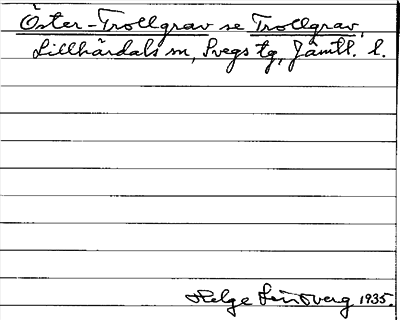 Öster-Trollgrav se Trollgrav,
Lillhärdals sn, Svegs tg, Jämtl. l.
Helge Lindberg 1935.